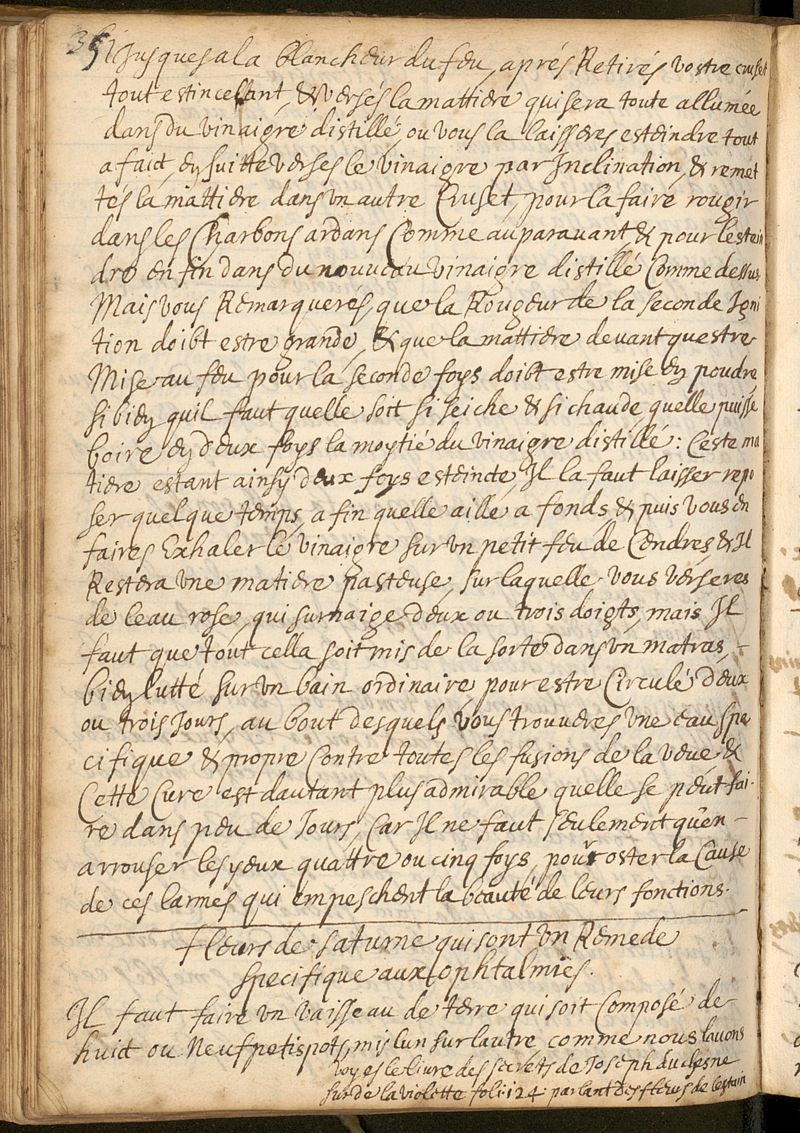 351 Jusques a la blancheur du feu, aprés Retirés vostre cruset
tout estincellant, & versés la mattiere qui sera toute allumée
dans du vinaigre distillé, ou vous la laisseres esteindre tout
a faict, en suitte verses le vinaigre par Inclination, & remet
tés la mattiere dans un autre Cruset, pour la faire rougir
dans les Charbons ardans Comme auparavant & pour lestein
dre en fin dans du nouveau vinaigre distillé Comme dessus
Mais vous Remarquerés, que la Rougeur de la seconde Igni
tion doibt estre grande, & que la mattiere devant questre
Mise au feu pour la seconde foys doibt estre mise en poudre
si bien quil faut quelle soit si seiche & si chaude quelle puisse
boire en deux foys la moytié du vinaigre distillé: Ceste ma
tiere estant ainsy deux foys esteincte, Il la faut laisser repo
ser quelque temps, a fin quelle aille a fonds & puis vous en
faires Exhaler le vinaigre sur un petit feu de Cendres & Il
Restera une matiere pasteuse, sur laquelle vous verseres
de leau rose, qui surnaige deux ou trois doigts, mais Il
faut que tout cella soit mis de la sorte dans un matras,
bien lutté sur un bain ordinaire pour estre Circulé deux
ou trois Jours, au bout desquels vous trouveres une eau spe
cifique & propre Contre toutes les fusions de la veue &
Cette Cure est dautant plus admirable quelle se peut fai-
re dans peu de Jours, Car Il ne faut seulement qu'en-
arrouser les yeux quattre ou cinq foys, pour oster la Cause
de ces larmes qui empeschent la beauté de leurs fonctions.
Fleurs de saturne qui sont un Remede
specifique aux ophtalmies.
Il faut faire un vaisseau de terre qui soit Composé de
huict ou Neuf petis pots, mis lun sur lautre comme nous lavons
voyes le livre des secrets de Joseph du chesne
sur de la violette foli. 124 parlant des fleurs de lestain